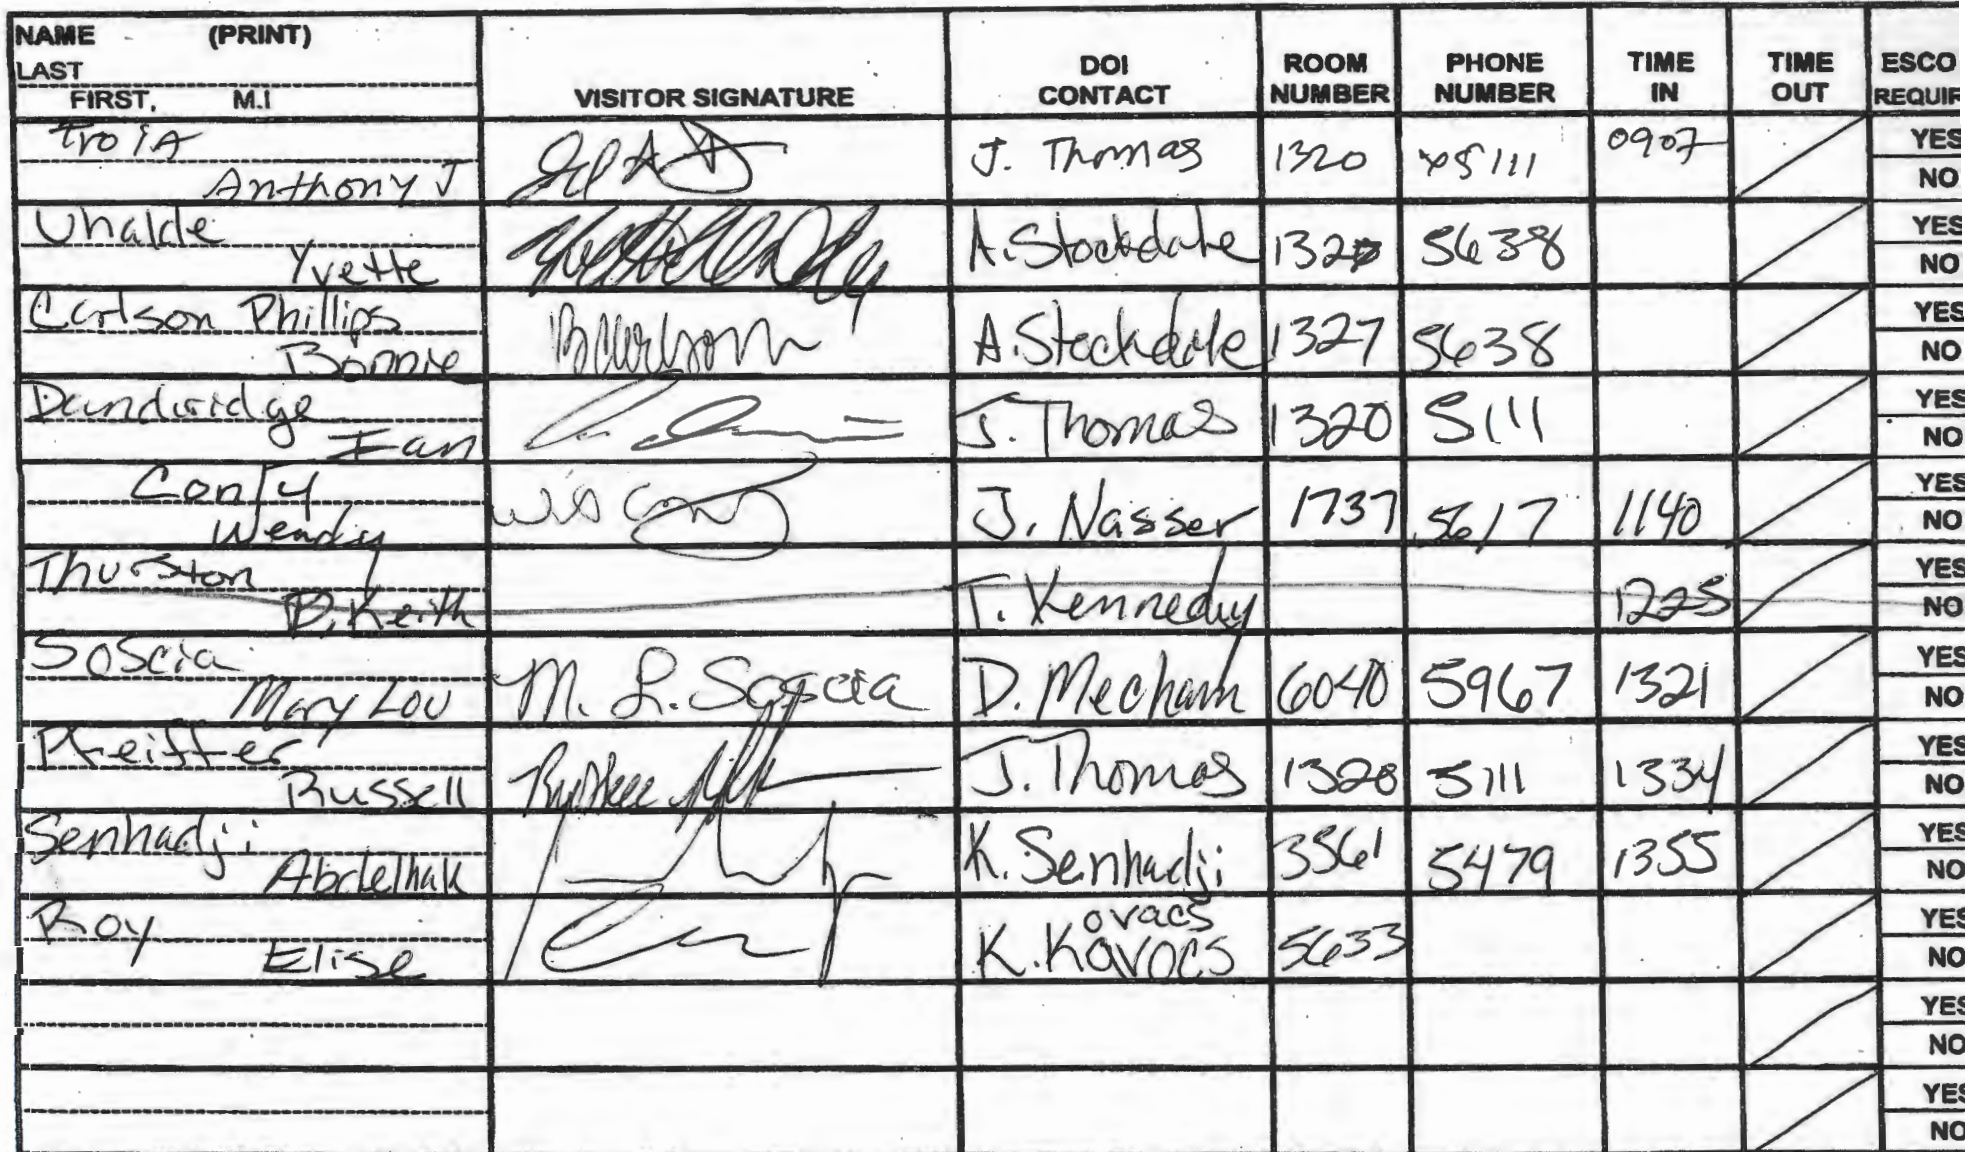 NAME (PRINT)
LAST
FIRST, M.I
VISITOR SIGNATURE
DOI CONTACT
ROOM NUMBER
PHONE NUMBER
TIME IN
TIME OUT
ESCO
REQUIR
Troia
Anthony J
J. Thomas 1320 x5111 0907 YES
NO
Uhalde
Yvette
A. Stockdale 1327 5638 YES
NO
Carlson Phillips
Bonnie
A. Stockdale 1327 5638 YES
NO
Dandridge
Ian
J. Thomas 1320 5111 YES
NO
Conty
Wendy
J. Nasser 1737 5617 1140 YES
NO
Thurston
B. Keith
T. Kennedy 1225 YES
NO
Soscia
Mary Lou
M. L. Soscia D. Mecham 6040 5967 1321 YES
NO
Pfeiffer
Russell
J. Thomas 1320 5111 1334 YES
NO
Senhadji
Abdelhak
K. Senhadji 3561 5479 1355 YES
NO
Roy
Elise
ovacs
K. Kovocs 5633 YES
NO
YES
NO
YES
NO